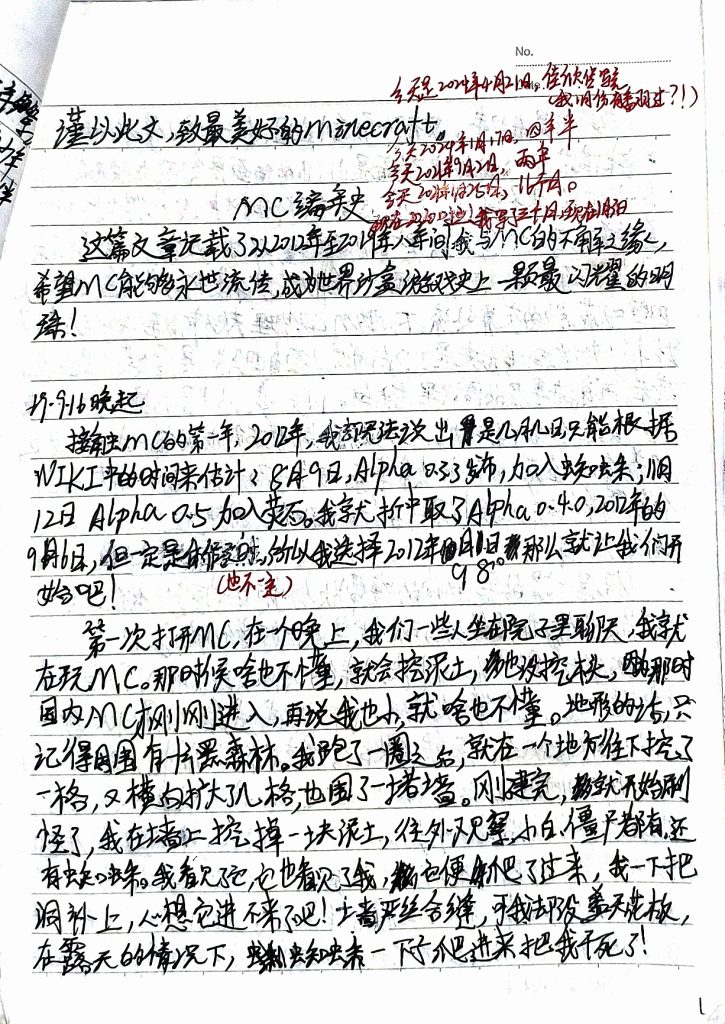 No.
今天是2024年4月21日,
(我1月份有看到过?!)
谨以此文,致最美好的minecraft。
今天2024年1月17日,四年半
今天2021年9月2日,两年
今天2021年1月25日,16个月。
MC编年史
这篇文章记载了从2012年至2019年八年间我与MC的不解之缘,
希望MC能够永世流传,成为世界沙盒游戏史上一颗最闪耀的明
珠!
19.9.16晚起
接触MC的第一年,2012年,我却无法记出是几月几日只能根据
WIKI中的时间来估计:8月9日,Alpha 0.3.3发布,加入蜘蛛;11月
12日 Alpha 0.5加入萤石。我就折中取了Alpha 0.4.0,2012年的
9月6日,但一定是暑假玩的,所以我选择2012年 月 日 那么就让我们开
9 8
始吧!
(也不一定)
第一次打开MC,在一个晚上,我们一些人坐在院子里聊天,我就
在玩MC。那时候啥也不懂,就会挖泥土,也没挖木头,因为那时
国内MC才刚刚进入,再说我也小,就啥也不懂。地形的话,只
记得周围有片黑森林。我跑了一圈之后,就在一个地方往下挖了
一格,又横向扩大了几格,也围了一堵墙。刚建完,就开始刷
怪了,我在墙上挖掉一块泥土,往外观察,小白、僵尸都有,还
有蜘蛛。我看见了它,它也看见了我,它便爬了过来,我一下把
洞补上,心想它进不来了吧!土墙严丝合缝,可我却没盖天花板,
在露天的情况下,蜘蛛一下子爬进来把我干死了!
1